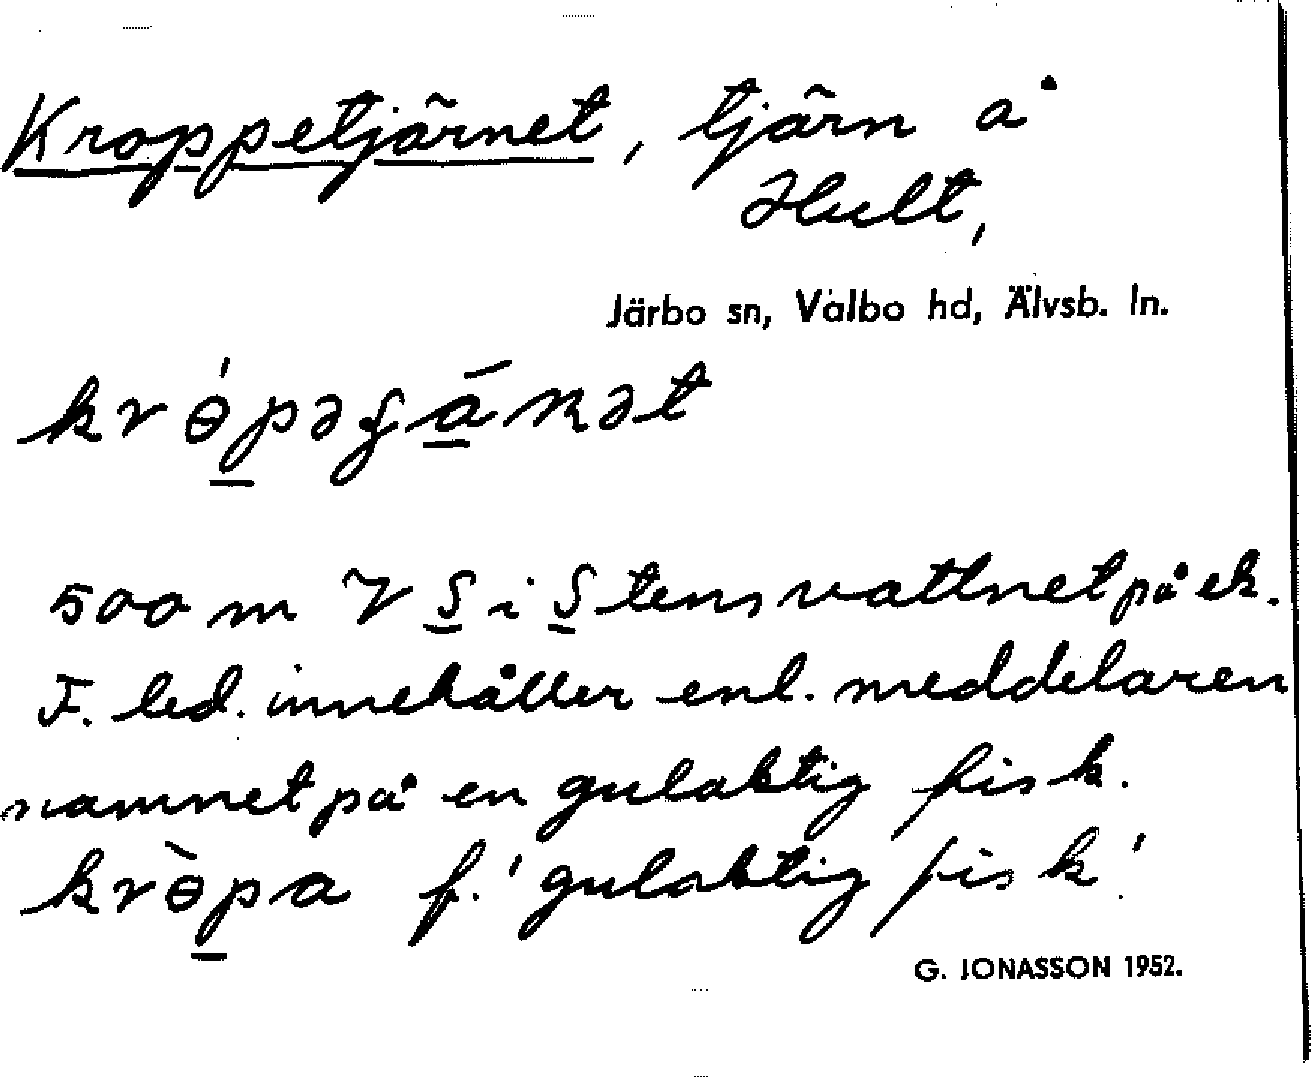 Kroppetjärnet, tjärn å
Hult,
Järbo sn, Valbo hd, Älvsb. ln.
500 m V S i Stensvattnet på ek.
F. led. innehåller enl. meddelaren
namnet på en gulaktig fisk.
krɵ̀pa f. 'gulaktig fisk'.
G. JONASSON 1952.